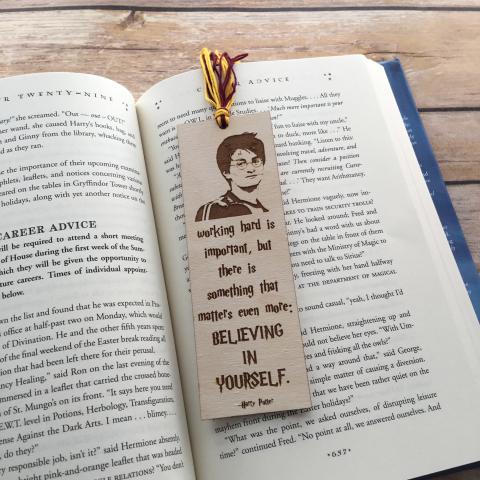 R TWENTY-NINE
she screamed. "Out — out — OUT!"
wand, she caused Harry's books, bag, and
and Ginny from the library, whacking them
as they ran.
the importance of their upcoming examina-
phlets, leaflets, and notices concerning various
on the tables in Gryffindor Tower shortly
holidays, along with yet another notice on the
CAREER ADVICE
will be required to attend a short meeting
of House during the first week of the Sum-
which they will be given the opportunity to
future careers. Times of individual appoint-
below.
down the list and found that he was expected in Pro-
office at half-past two on Monday, which would
of Divination. He and the other fifth years spent
of the final weekend of the Easter break reading all
that had been left there for their perusal.
Healing," said Ron on the last evening of the
immersed in a leaflet that carried the crossed bone-
of St. Mungo's on its front. "It says here you need
N.E.W.T. level in Potions, Herbology, Transfiguration,
Defense Against the Dark Arts. I mean . . . blimey. . . .
responsible job, isn't it?" said Hermione absently.
bright pink-and-orange leaflet that was headed
RELATIONS? "You don't
ADVICE
need to many qualifications to liaise with Muggles. . . . All they
Studies. . . . Much more important is your
working hard is
important, but
there is
something that
matters even more:
BELIEVING
IN
YOURSELF.
-Harry Potter
to liaise with my uncle,"
to duck, more like . . ." He
banking. "Listen to this:
involving travel, adventure, and
Then consider a position
currently recruiting Curse-
They want Arithmancy.
said Hermione vaguely, now im-
TO TRAIN SECURITY TROLLS?
He looked around; Fred and
had a word with us about
on the table in front of them
with the Ministry of Magic to
need you to talk to Sirius?"
freezing with her hand halfway
AT THE DEPARTMENT OF MAGICAL
to sound casual. "yeah, I thought I'd
said Hermione, straightening up and
not believe her eyes. "With Um-
and frisking all the owls?"
a way around that," said George,
matter of causing a diversion.
that we have been rather quiet on the
mayhem front during the Easter holidays?"
"What was the point, we asked ourselves, of disrupting leisure
time?" continued Fred. "No point at all, we answered ourselves. And
637